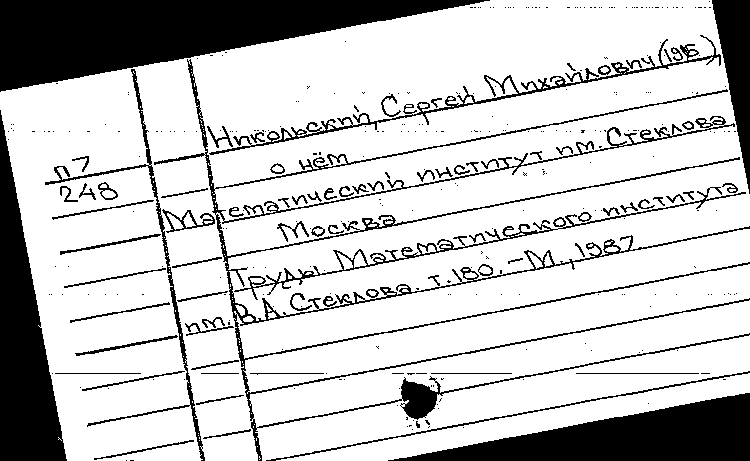 Никольский, Сергей Михайлович (1915),
п7
о нём
248
Математический институт им. Стеклова
Москва
Труды Математического института
им. В.А. Стеклова. т. 180. - М., 1987